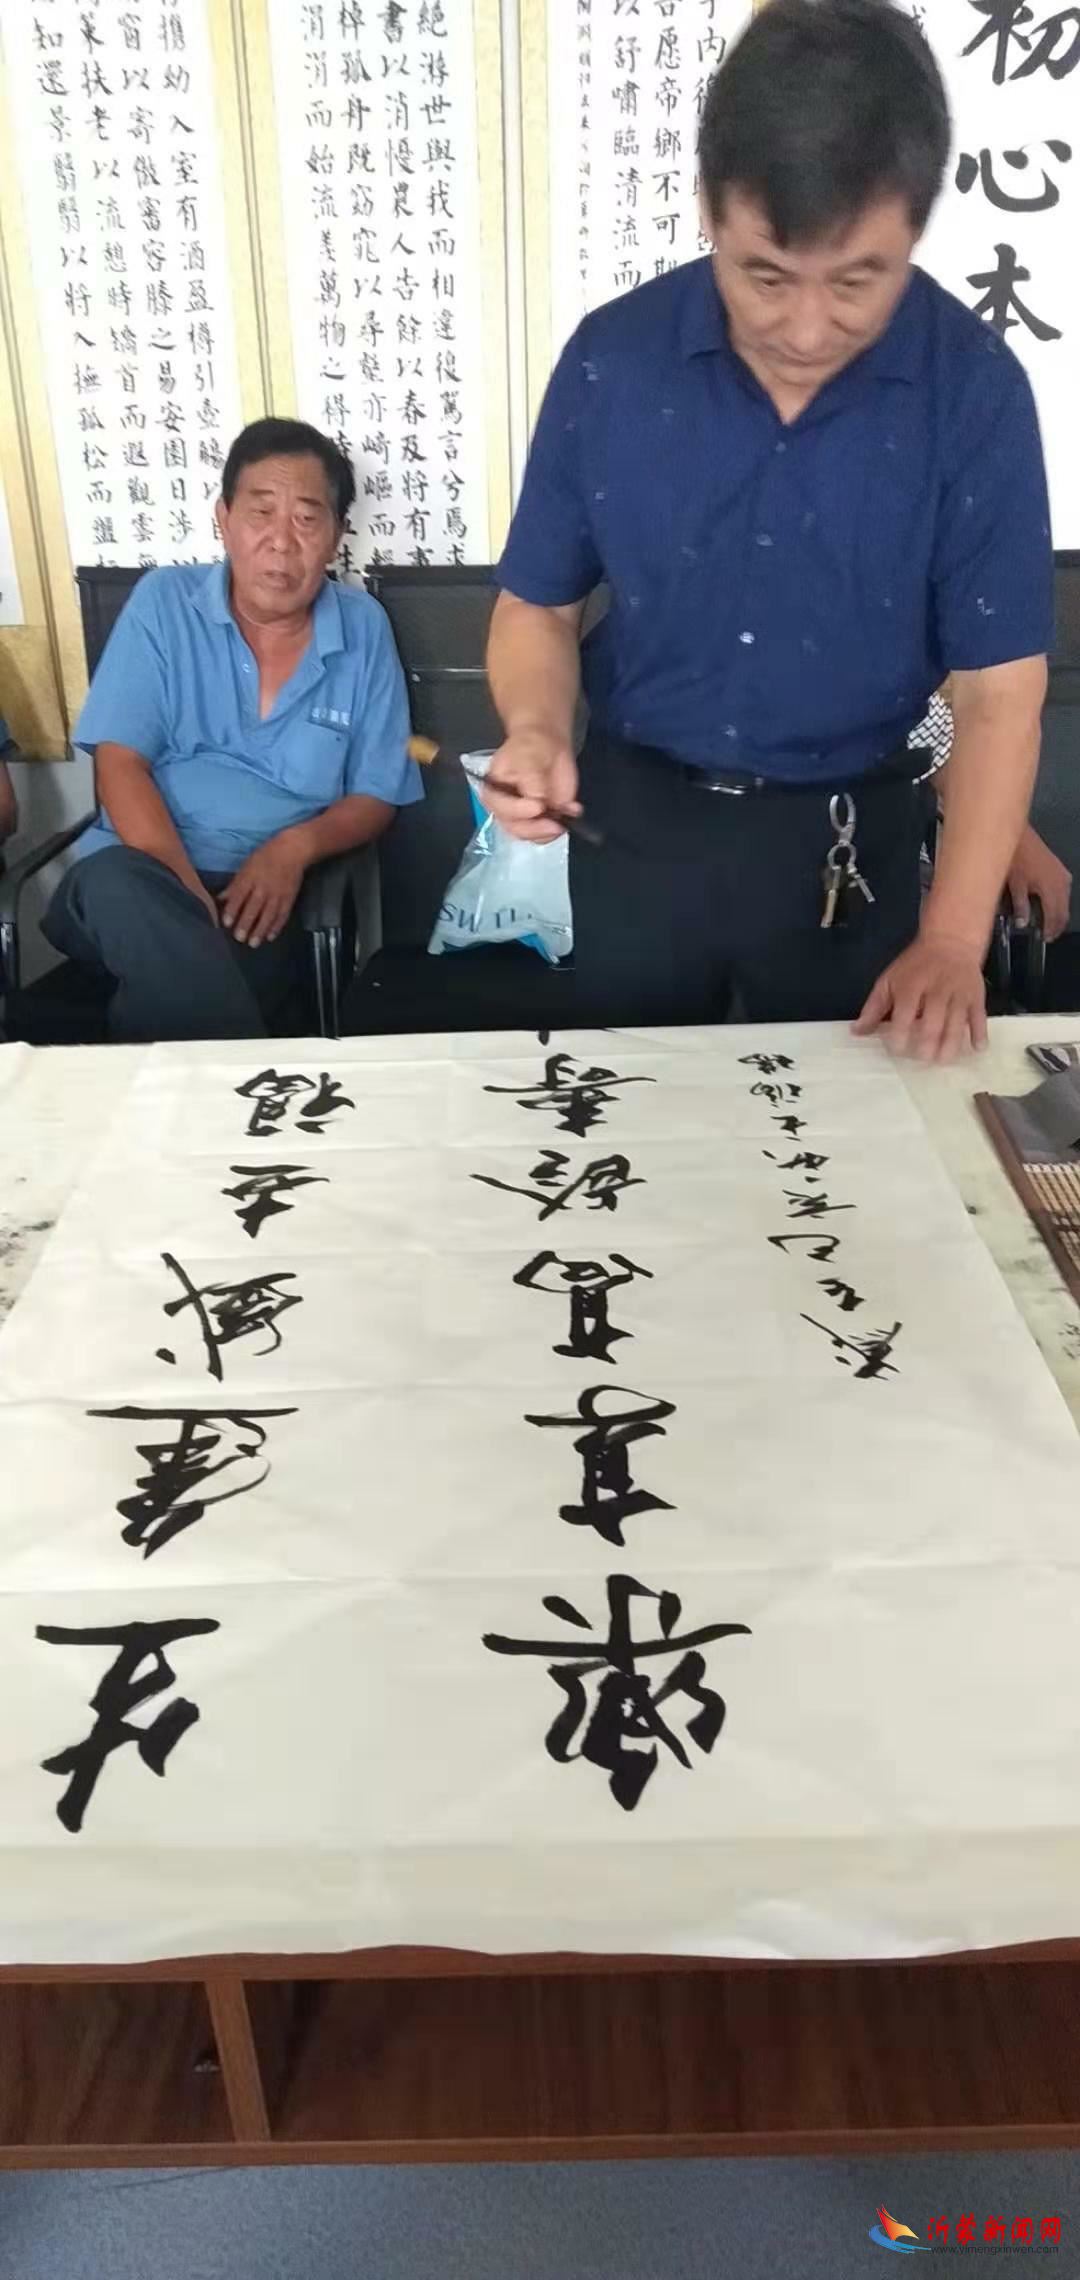 初心本
宇內復
愿帝鄉不可期
以舒嘯臨清流而
絕游世與我而相違復駕言兮焉求
書以消憂農人告餘以春及將有事
棹孤舟既窈窕以尋壑亦崎嶇而
涓涓而始流羨萬物之得時
攜幼入室有酒盈樽引壺觴以自
窗以寄傲審容膝之易安園日涉以
策扶老以流憩時矯首而遐觀雲無
知還景翳翳以將入撫孤松而盤桓
生逢盛世福
樂享高齡壽
歲在己亥秋
沂蒙新闻网
www.yimengxinwen.com